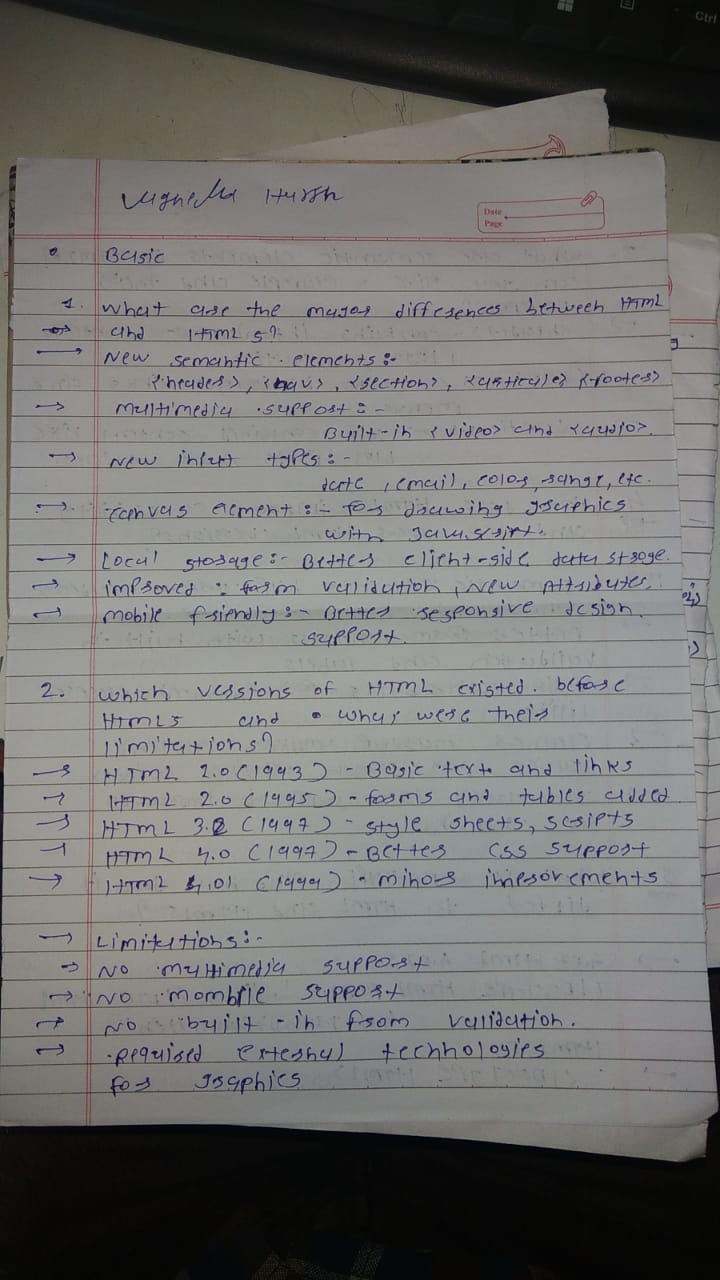 Harsh
Date
Page
Basic
1. what are the major differences between HTML
and HTML 5?
→ New semantic elements :-
<header>, <nav>, <section>, <article> <footer>
→ multimedia support :-
Built-in <video> and <audio>.
→ New input types :-
date, email, color, range, etc.
→ canvas element :- for drawing graphics
with Javascript.
→ Local storage :- Better client-side data stroge.
→ improved : form validation, New Attributes.
→ mobile friendly :- Better responsive design
support.
2. which versions of HTML existed. before
HTML5 and what were their
limitations?
→ HTML 1.0 (1993) - Basic text and links
→ HTML 2.0 (1995) - forms and tables added
→ HTML 3.2 (1997) - style sheets, scripts
→ HTML 4.0 (1997) - Better CSS support
→ HTML 4.01 (1999) - minor improvements
→ Limitations :-
→ NO multimedia support
→ NO mombile support
→ NO built-in from validation.
→ Required external technologies
for graphics
Ctrl